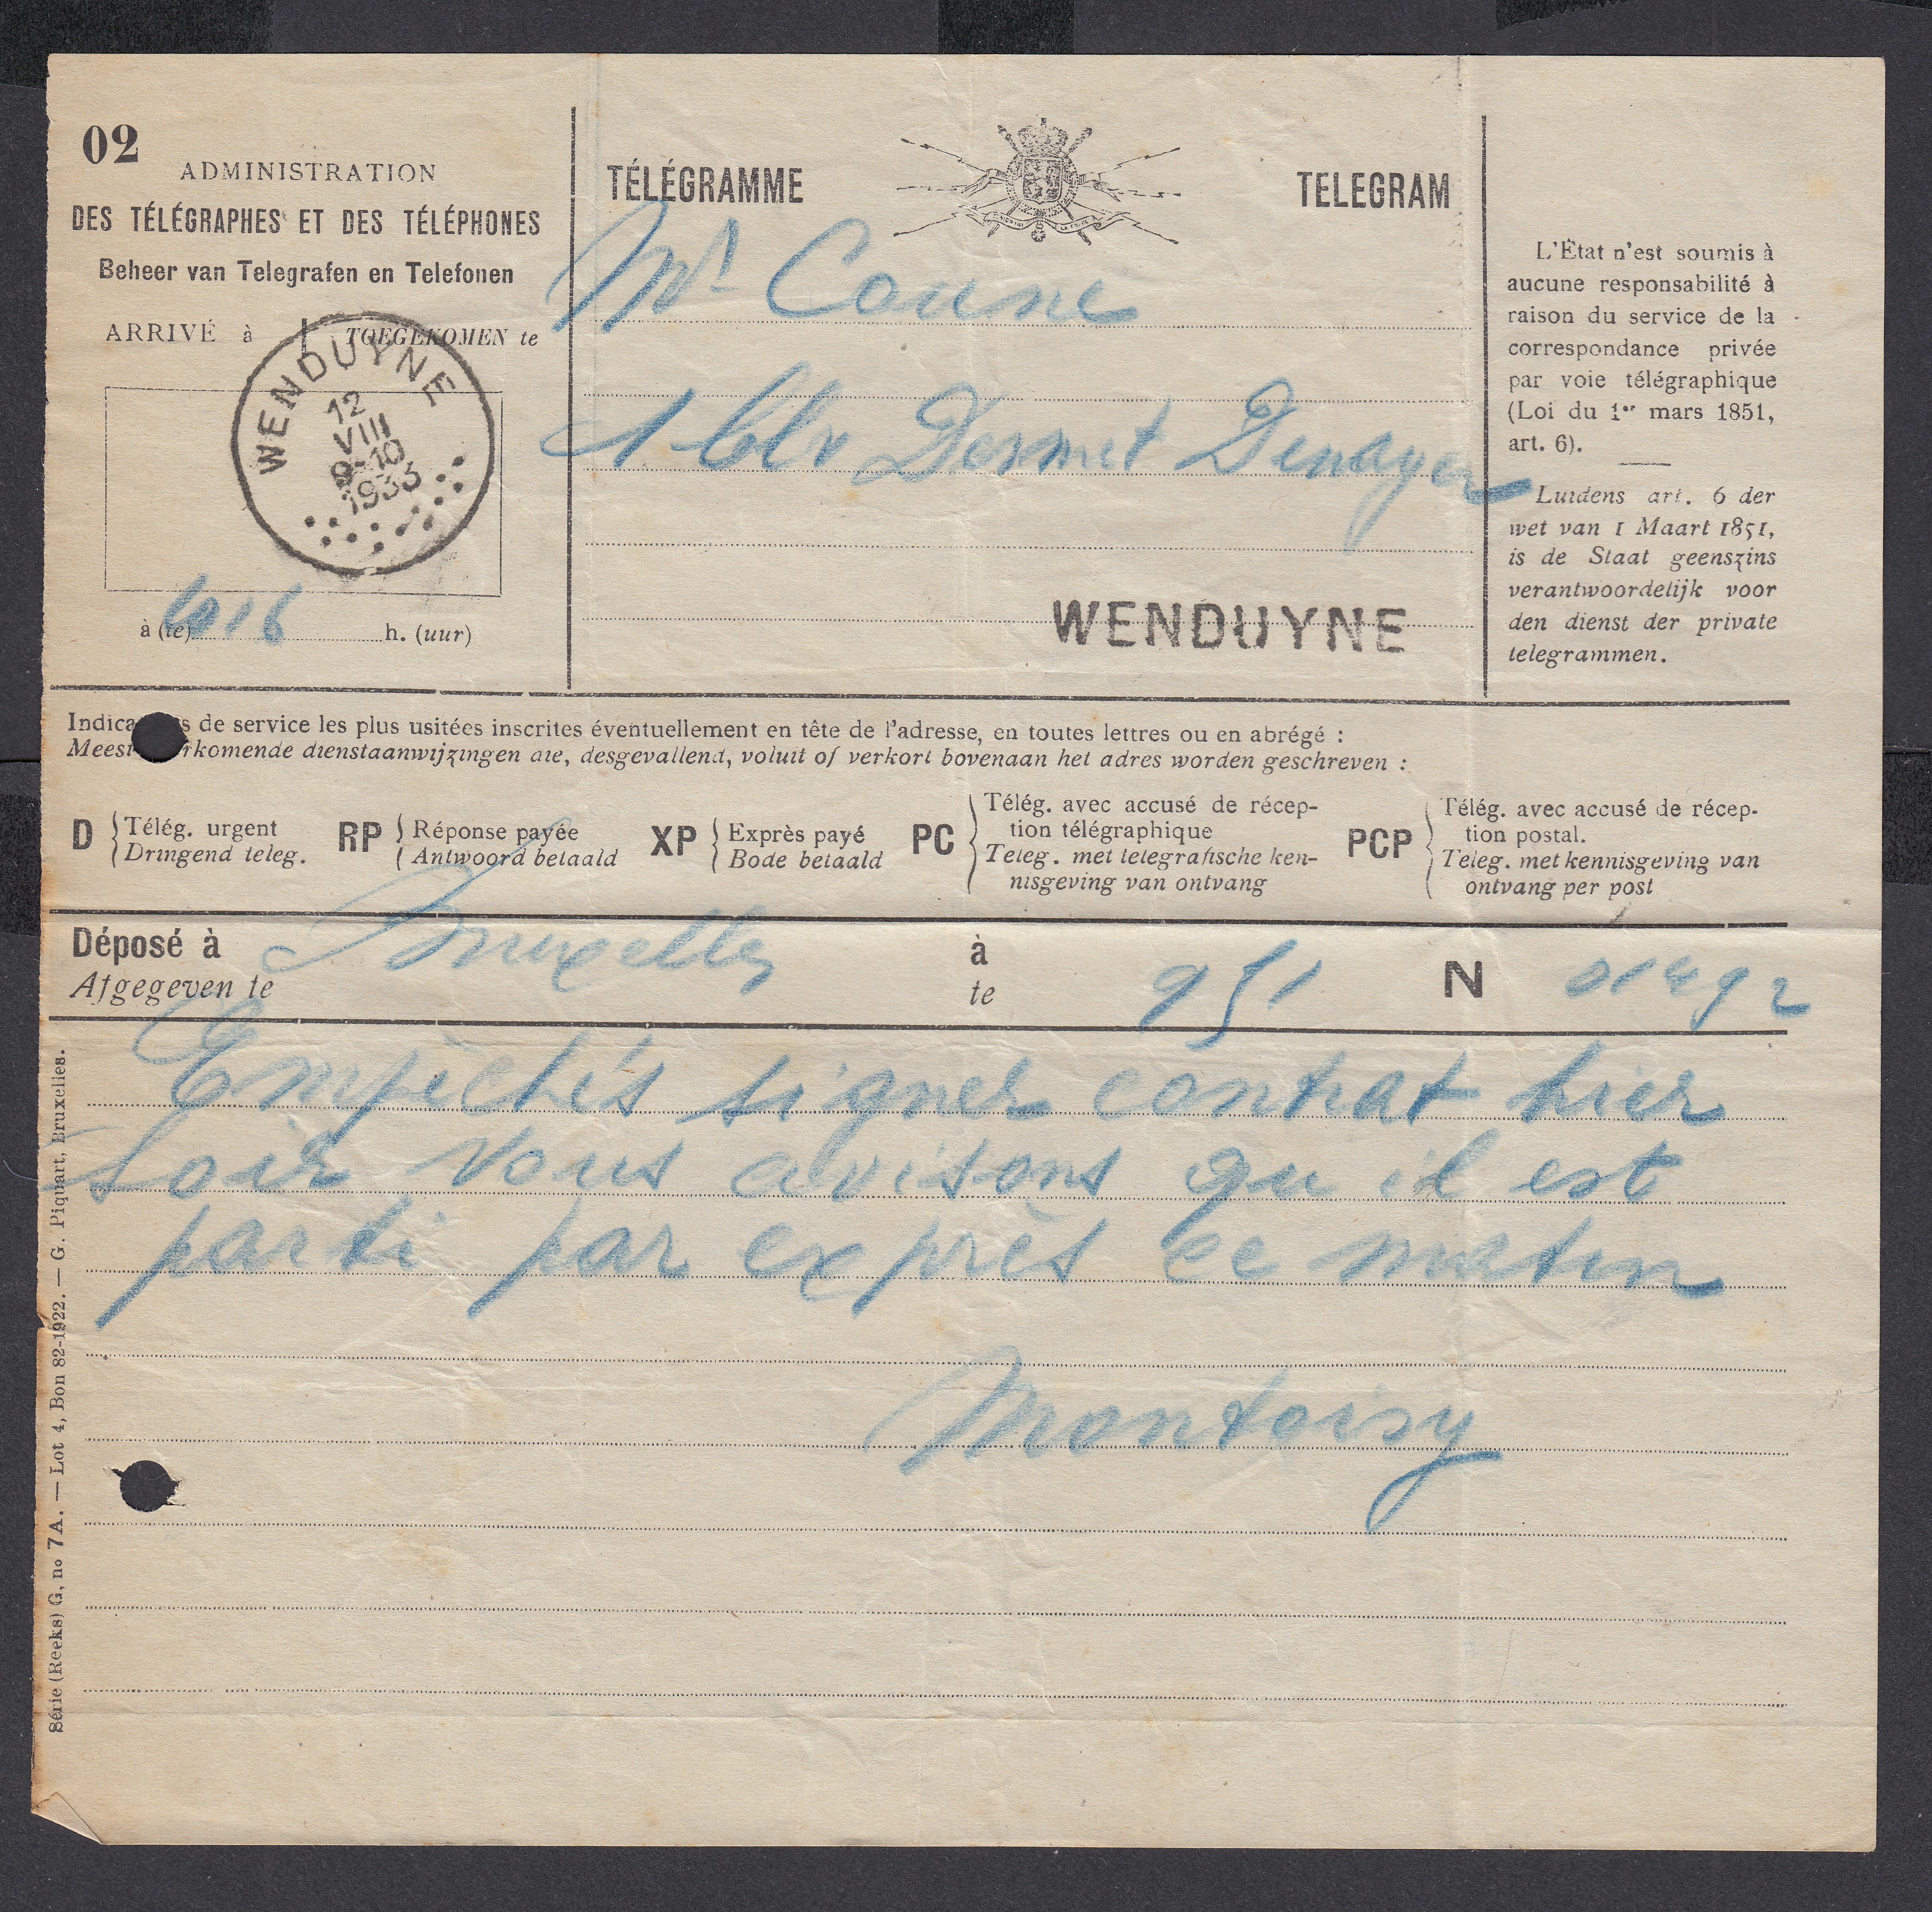 02
ADMINISTRATION
DES TÉLÉGRAPHES ET DES TÉLÉPHONES
Beheer van Telegrafen en Telefonen
ARRIVÉ à TOEGEKOMEN te
WENDUYNE
12
VIII
9-10
1933
à (te) 1016 h. (uur)
TÉLÉGRAMME
TELEGRAM
Mr Coune
1 blv Dermet Denayer
WENDUYNE
L'État n'est soumis à
aucune responsabilité à
raison du service de la
correspondance privée
par voie télégraphique
(Loi du 1er mars 1851,
art. 6).
Luidens art. 6 der
wet van 1 Maart 1851,
is de Staat geenszins
verantwoordelijk voor
den dienst der private
telegrammen.
Indica s de service les plus usitées inscrites éventuellement en tête de l'adresse, en toutes lettres ou en abrégé :
Meest rkomende dienstaanwijzingen die, desgevallend, voluit of verkort bovenaan het adres worden geschreven :
D Télég. urgent
Dringend teleg.
RP Réponse payée
Antwoord betaald
XP Exprès payé
Bode betaald
PC Télég. avec accusé de récep-
tion télégraphique
Teleg. met telegrafische ken-
nisgeving van ontvang
PCP Télég. avec accusé de récep-
tion postal.
Teleg. met kennisgeving van
ontvang per post
Déposé à Bruxelles à 951 N
Afgegeven te te
Empèchés signer contrat hier
soir vous avisons qu il est
parti par exprès ce matin
Montoisy
Série (Reeks) G, no 7 A. — Lot 4, Bon 82-1922. — G. Piquart, Bruxelles.